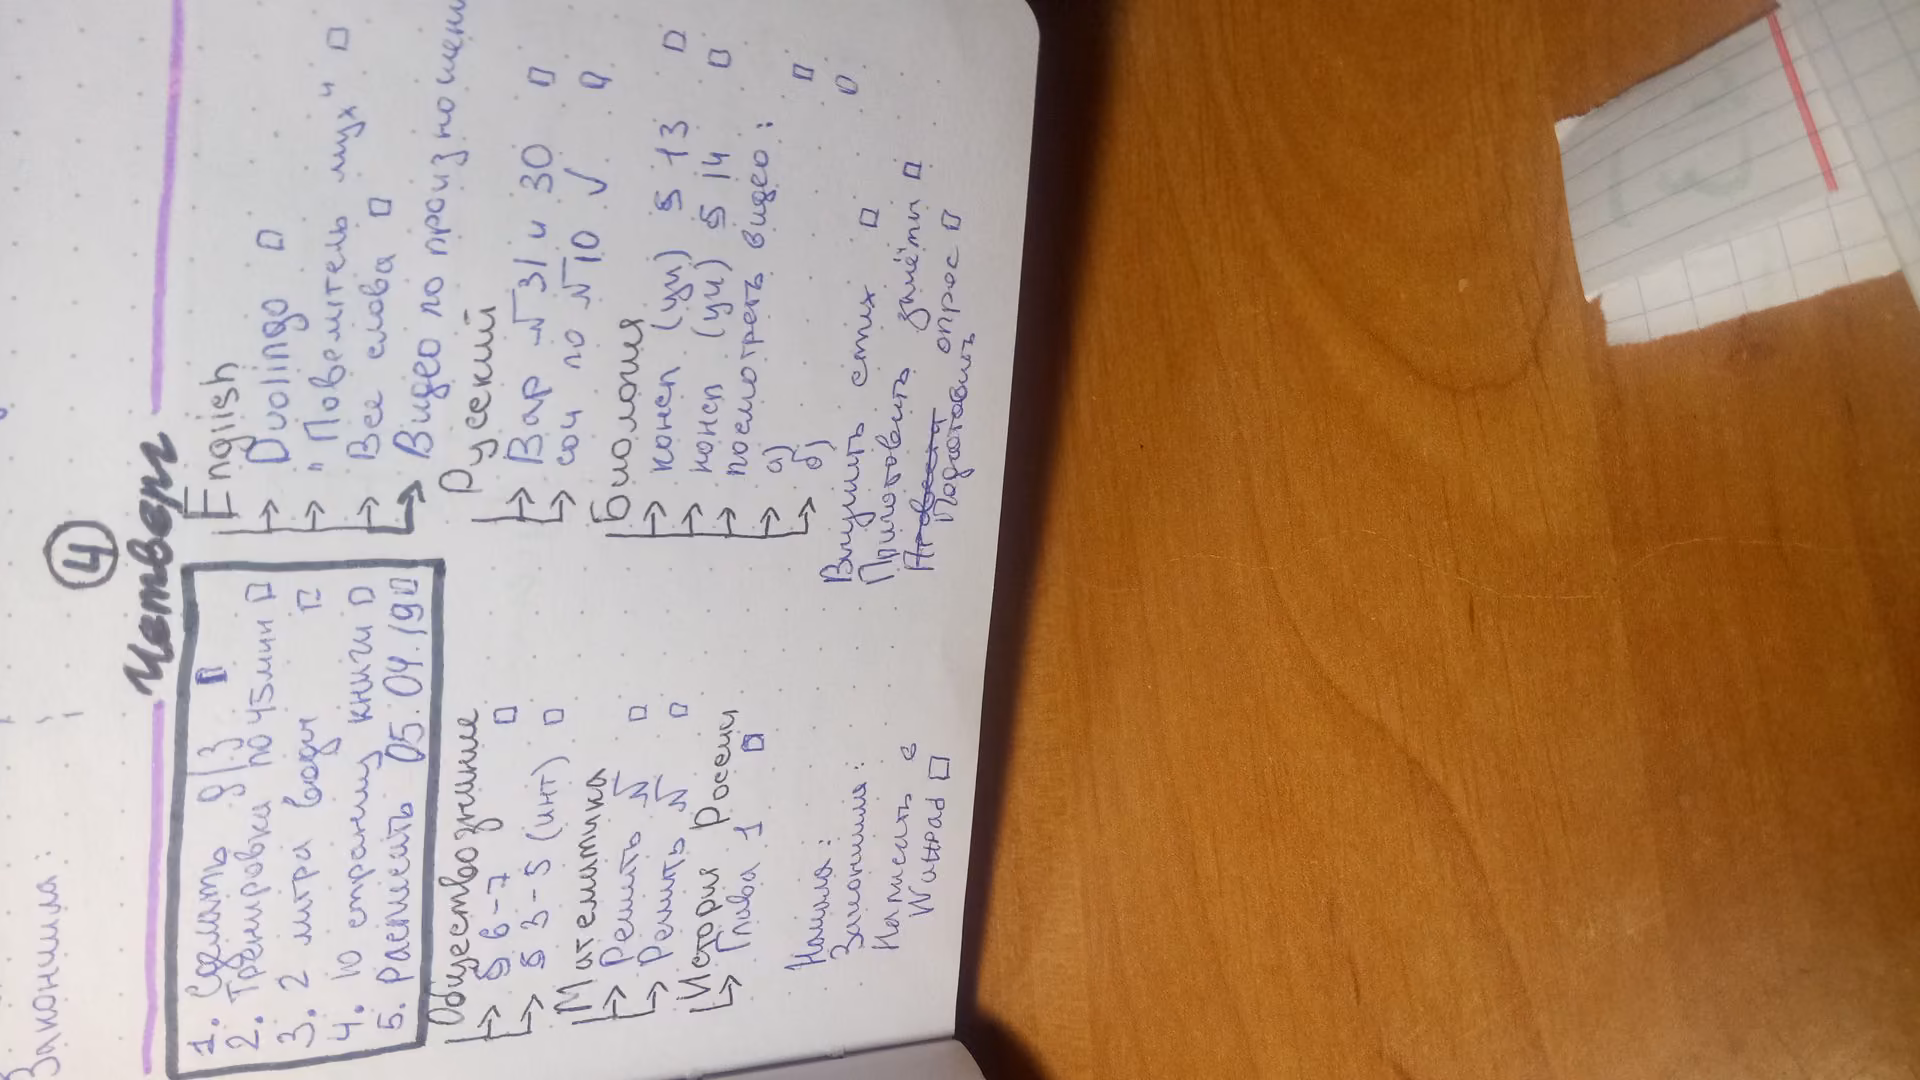 Закончила:
4
Четверг
1. Сделать д/з
2. Тренировка по 45 мин
3. 2 литра воды
4. 10 страниц книги
5. Расписать 05.04.19
Обществознание
§ 6-7
§ 3-5 (инт)
Математика
Решить №
Решить №
История России
Глава 1
Начала:
Закончила:
Написать в
Wattpad
English
Duolingo
"Повелитель мух"
Все слова
Видео по произношени
Русский
Вар №31 и 30
соч по №10 ✓
Биология
консп (уч) § 13
консп (уч) § 14
посмотреть видео:
а)
б)
Выучить стих
Приготовить зачёты
Провести
Подготовить опрос